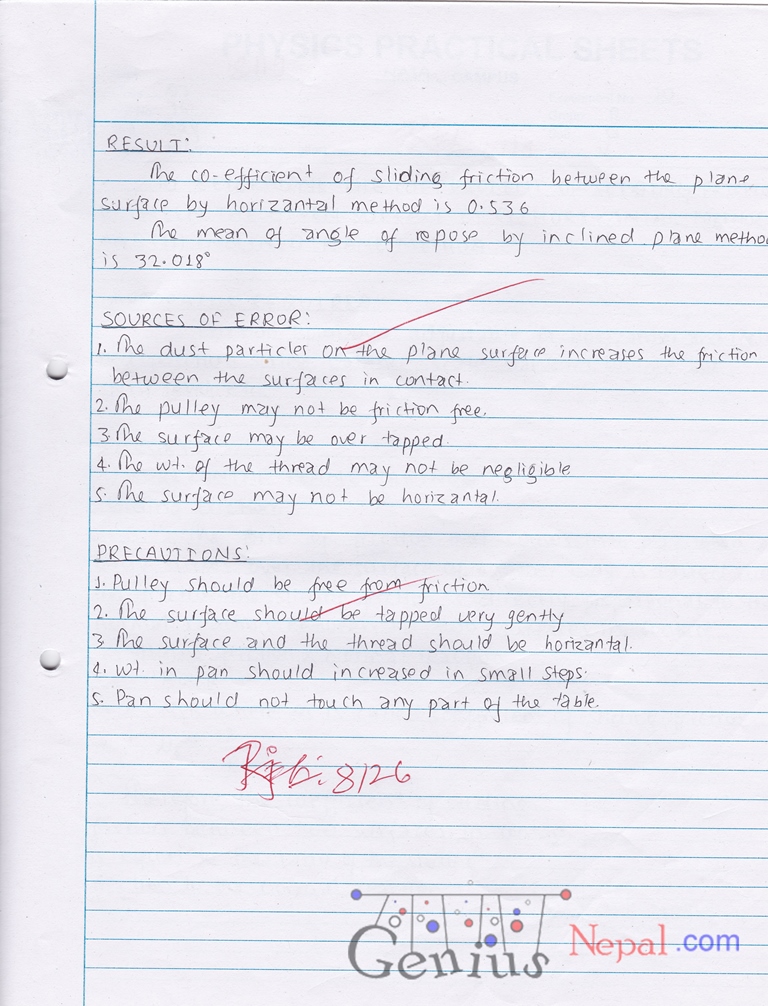 PHYSICS PRACTICAL SHEETS
RESULT:
The co-efficient of sliding friction between the plane
surface by horizantal method is 0.536
The mean of angle of repose by inclined plane metho
is 32.018°
SOURCES OF ERROR:
1. The dust particles on the plane surface increases the friction
between the surfaces in contact.
2. The pulley may not be friction free.
3. The surface may be over tapped.
4. The wt. of the thread may not be negligible
5. The surface may not be horizantal.
PRECAUTIONS:
1. Pulley should be free from friction
2. The surface should be tapped very gently
3 The surface and the thread should be horizantal.
4. wt. in pan should increased in small steps.
5. Pan should not touch any part of the table.
8/26
Genius Nepal.com